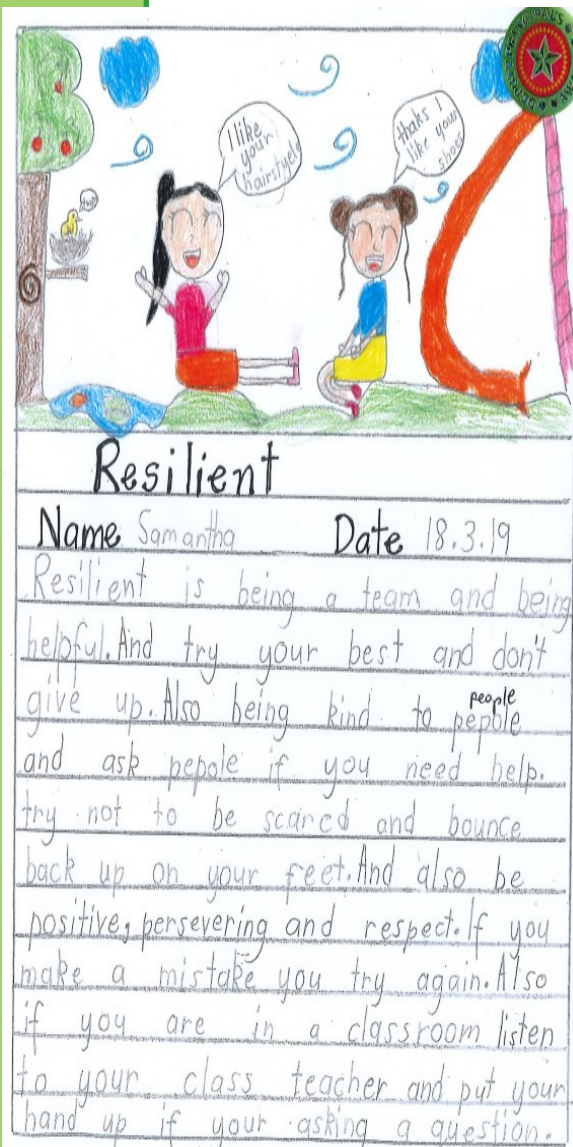 DEPUTY PRINCIPAL'S
I like
your
hairstyele
thaks I
like your
shoes
Resilient
Name Samantha Date 18.3.19
Resilient is being a team and being
helpful. And try your best and don't
give up. Also being kind to pepole
people
and ask pepole if you need help.
try not to be scared and bounce
back up on your feet. And also be
positive, persevering and respect. If you
make a mistake you try again. Also
if you are in a classroom listen
to your class teacher and put your
hand up if your asking a question.